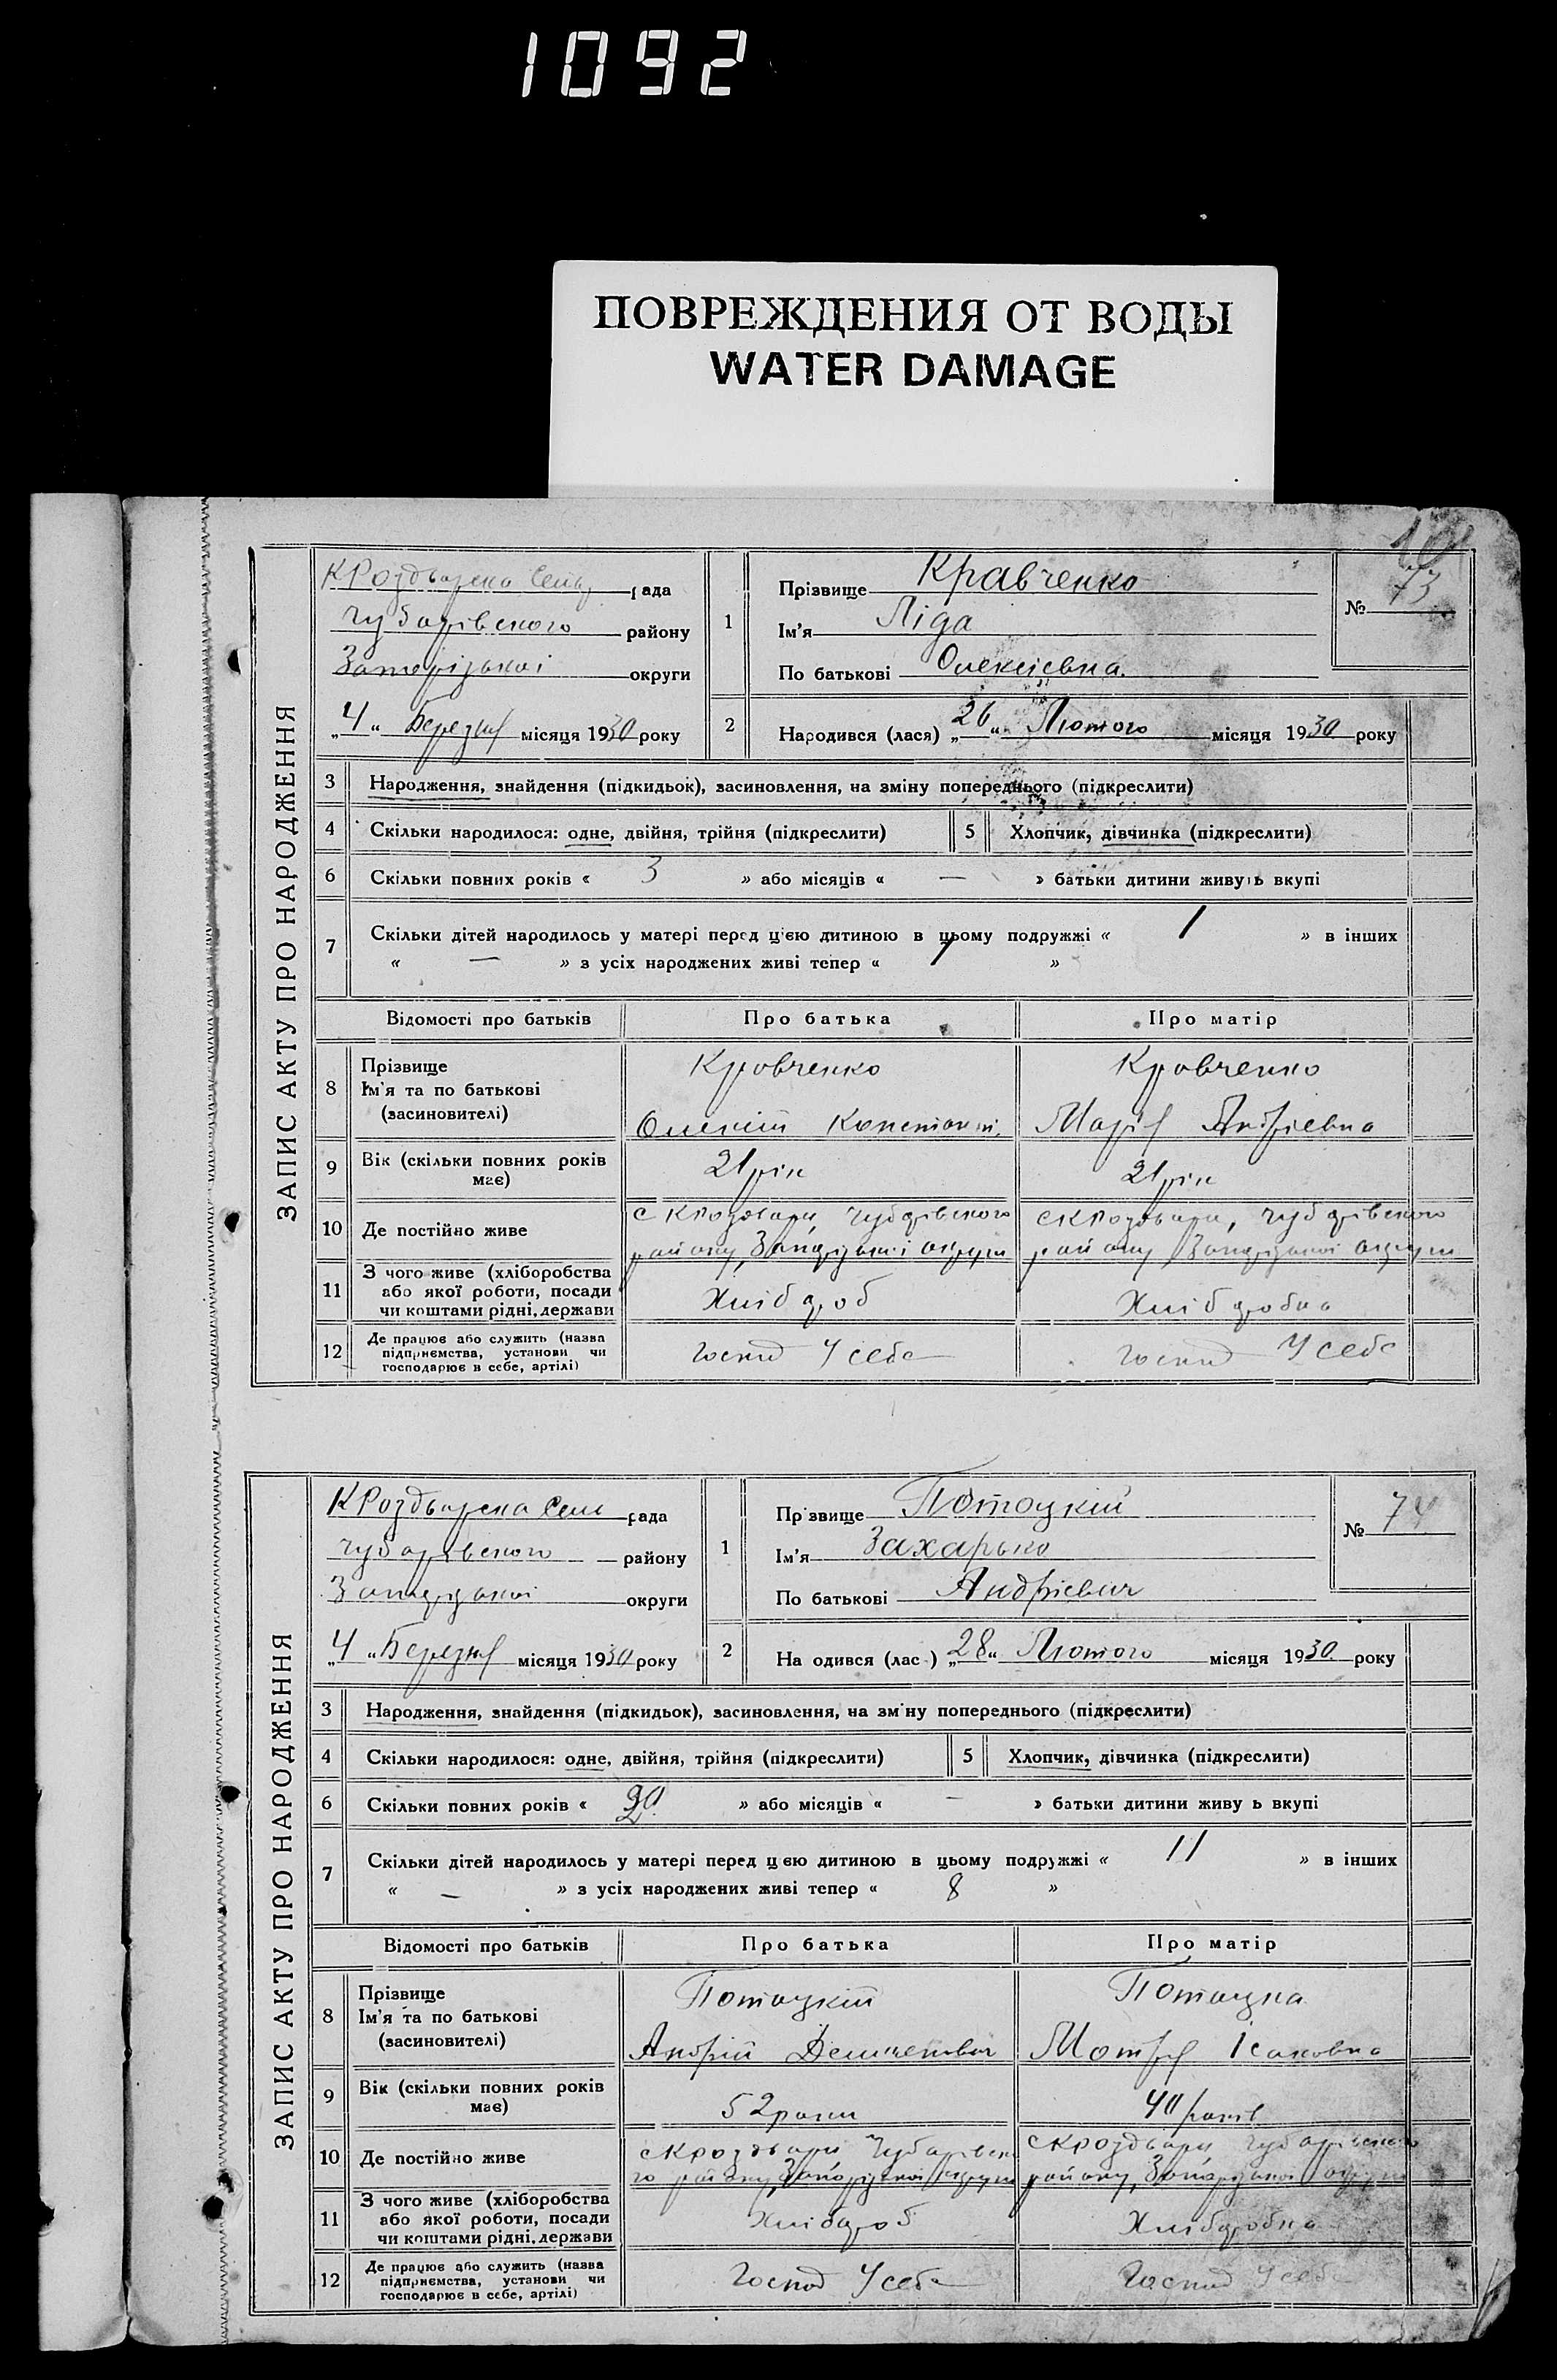 1092
ПОВРЕЖДЕНИЯ ОТ ВОДЫ
WATER DAMAGE
ЗАПИС АКТУ ПРО НАРОДЖЕННЯ
КРоздварска Сель рада
Чубарівського району
Запорізької округи
„4" Березня місяця 1930 року
1
Прізвище Кравченко
Ім'я Ліда
По батькові Олексієвна.
№ 73
2
Народився (лася) „26" Лютого місяця 1930 року
3 Народження, знайдення (підкидьок), засиновлення, на зміну попереднього (підкреслити)
4 Скільки народилося: одне, двійня, трійня (підкреслити) 5 Хлопчик, дівчинка (підкреслити)
6 Скільки повних років « 3 » або місяців « — » батьки дитини живуть вкупі
7 Скільки дітей народилось у матері перед цією дитиною в цьому подружжі « 1 » в інших
« — » з усіх народжених живі тепер « 1 »
Відомості про батьків Про батька Про матір
8 Прізвище
Ім'я та по батькові
(засиновителі)
Кровченко
Олексій Констант.
Кровченко
Марія Андрієвна
9 Вік (скільки повних років
має)
21 рік
21 рік
10 Де постійно живе
с КРоздвари, Чубарівського
району, Запорізької округи
с КРоздвари, Чубарівського
району, Запорізької округи
11 З чого живе (хліборобства
або якої роботи, посади
чи коштами рідні, держави
Хлібороб
Хліборобка
12 Де працює або служить (назва
підприємства, установи чи
господарює в себе, артілі)
Господ У себе
Господ У себе
ЗАПИС АКТУ ПРО НАРОДЖЕННЯ
КРоздварска Сель рада
Чубарівського району
Запорізької округи
„4" Березня місяця 1930 року
1
Прізвище Потоцкій
Ім'я Захарько
По батькові Андрієвич
№ 74
2
На одився (лас ) „28" Лютого місяця 1930 року
3 Народження, знайдення (підкидьок), засиновлення, на зм ну попереднього (підкреслити)
4 Скільки народилося: одне, двійня, трійня (підкреслити) 5 Хлопчик, дівчинка (підкреслити)
6 Скільки повних років « 20 » або місяців « — » батьки дитини живу ь вкупі
7 Скільки дітей народилось у матері перед цією дитиною в цьому подружжі « 11 » в інших
« — » з усіх народжених живі тепер « 8 »
Відомості про батьків Про батька Про матір
8 Прізвище
Ім'я та по батькові
(засиновителі)
Потоцкій
Андрій
Потоцка
Мотря Ісаковна
9 Вік (скільки повних років
має)
52 роки
40 років
10 Де постійно живе
с КРоздвари Чубарівсько
го району, Запорізької округи
с КРоздвари Чубарівського
району, Запорізької округи
11 З чого живе (хліборобства
або якої роботи, посади
чи коштами рідні, держави
Хлібороб
Хліборобка
12 Де працює або служить (назва
підприємства, установи чи
господарює в себе, артілі)
Господ У себе
Господ У себе